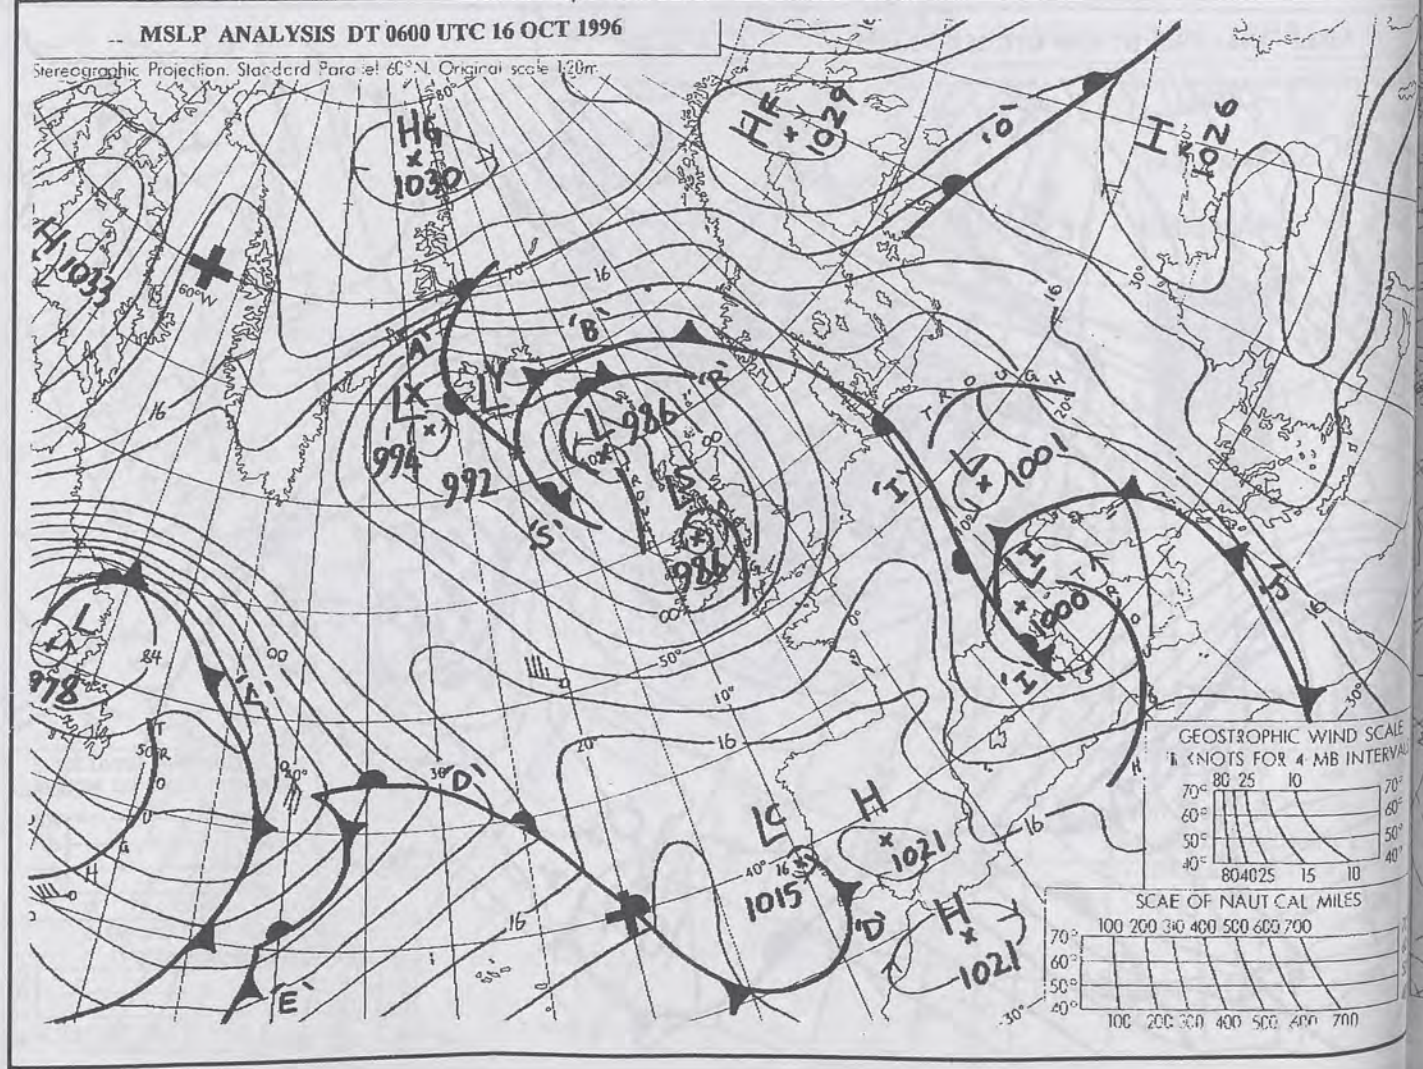 MSLP ANALYSIS DT 0600 UTC 16 OCT 1996
Stereographic Projection. Standard Para el 60°N. Original scale 1:20m
80°
HG
1030
HF
1029
'O'
H
1026
H
1033
60°W
70°
16
30°
16
'A'
'B'
LX
994
LY
992
'R'
L
986
TROUGH
20°
16
'S'
LS
986
00
'I'
L
1001
LI
1000
'I'
'L'
16
30°
L
978
84
00
'L'
00
50°
10°
0°
16
20°
30°
'D'
40°
16
LC
40° 16
1015
H
1021
16
H
1021
'D'
'E'
30°
GEOSTROPHIC WIND SCALE
KNOTS FOR 4 MB INTERVAL
80 25 10
70° 70°
60° 60°
50° 50°
40° 40°
80 40 25 15 10
SCAE OF NAUT CAL MILES
100 200 300 400 500 600 700
70°
60°
50°
40°
100 200 300 400 500 600 700